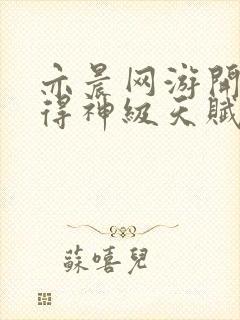 亦晨网游開
得神級天賦
蘇嘻兒